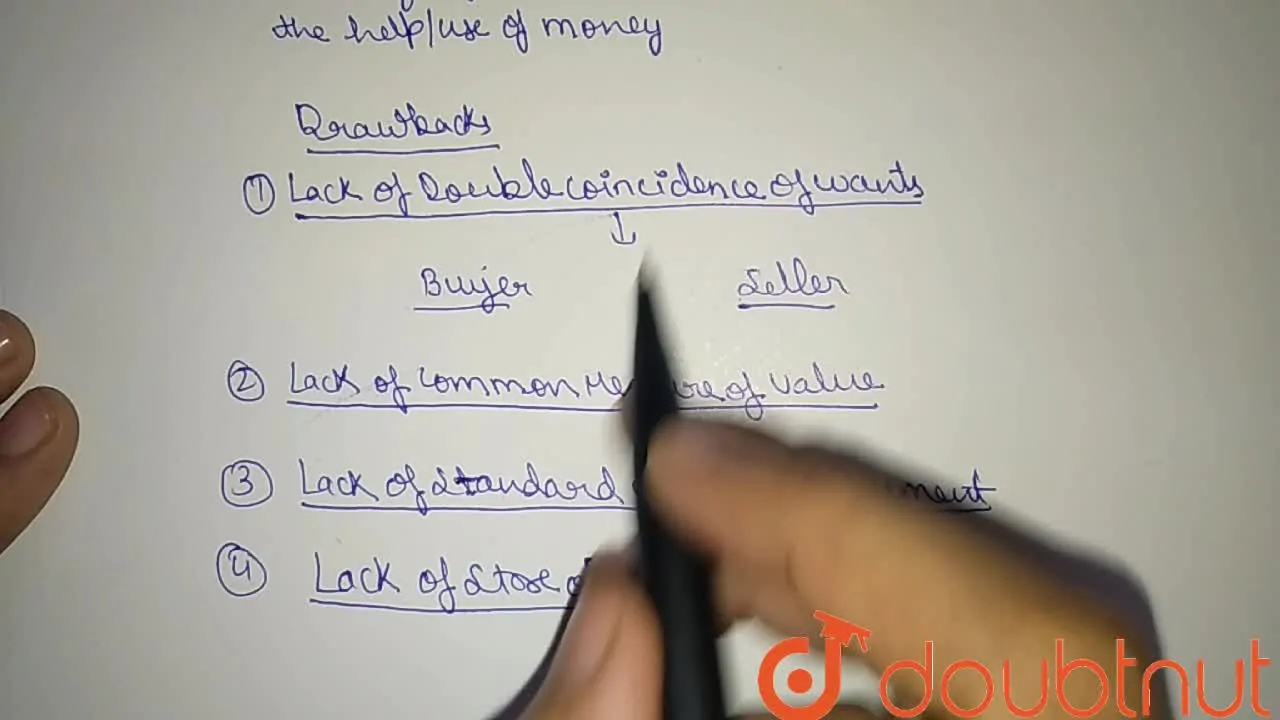 the help/use of money
Drawbacks
① Lack of Double coincidence of wants
↓
Buyer Seller
② Lack of common of value
③ Lack of Standard
④ Lack of Store
doubtnut